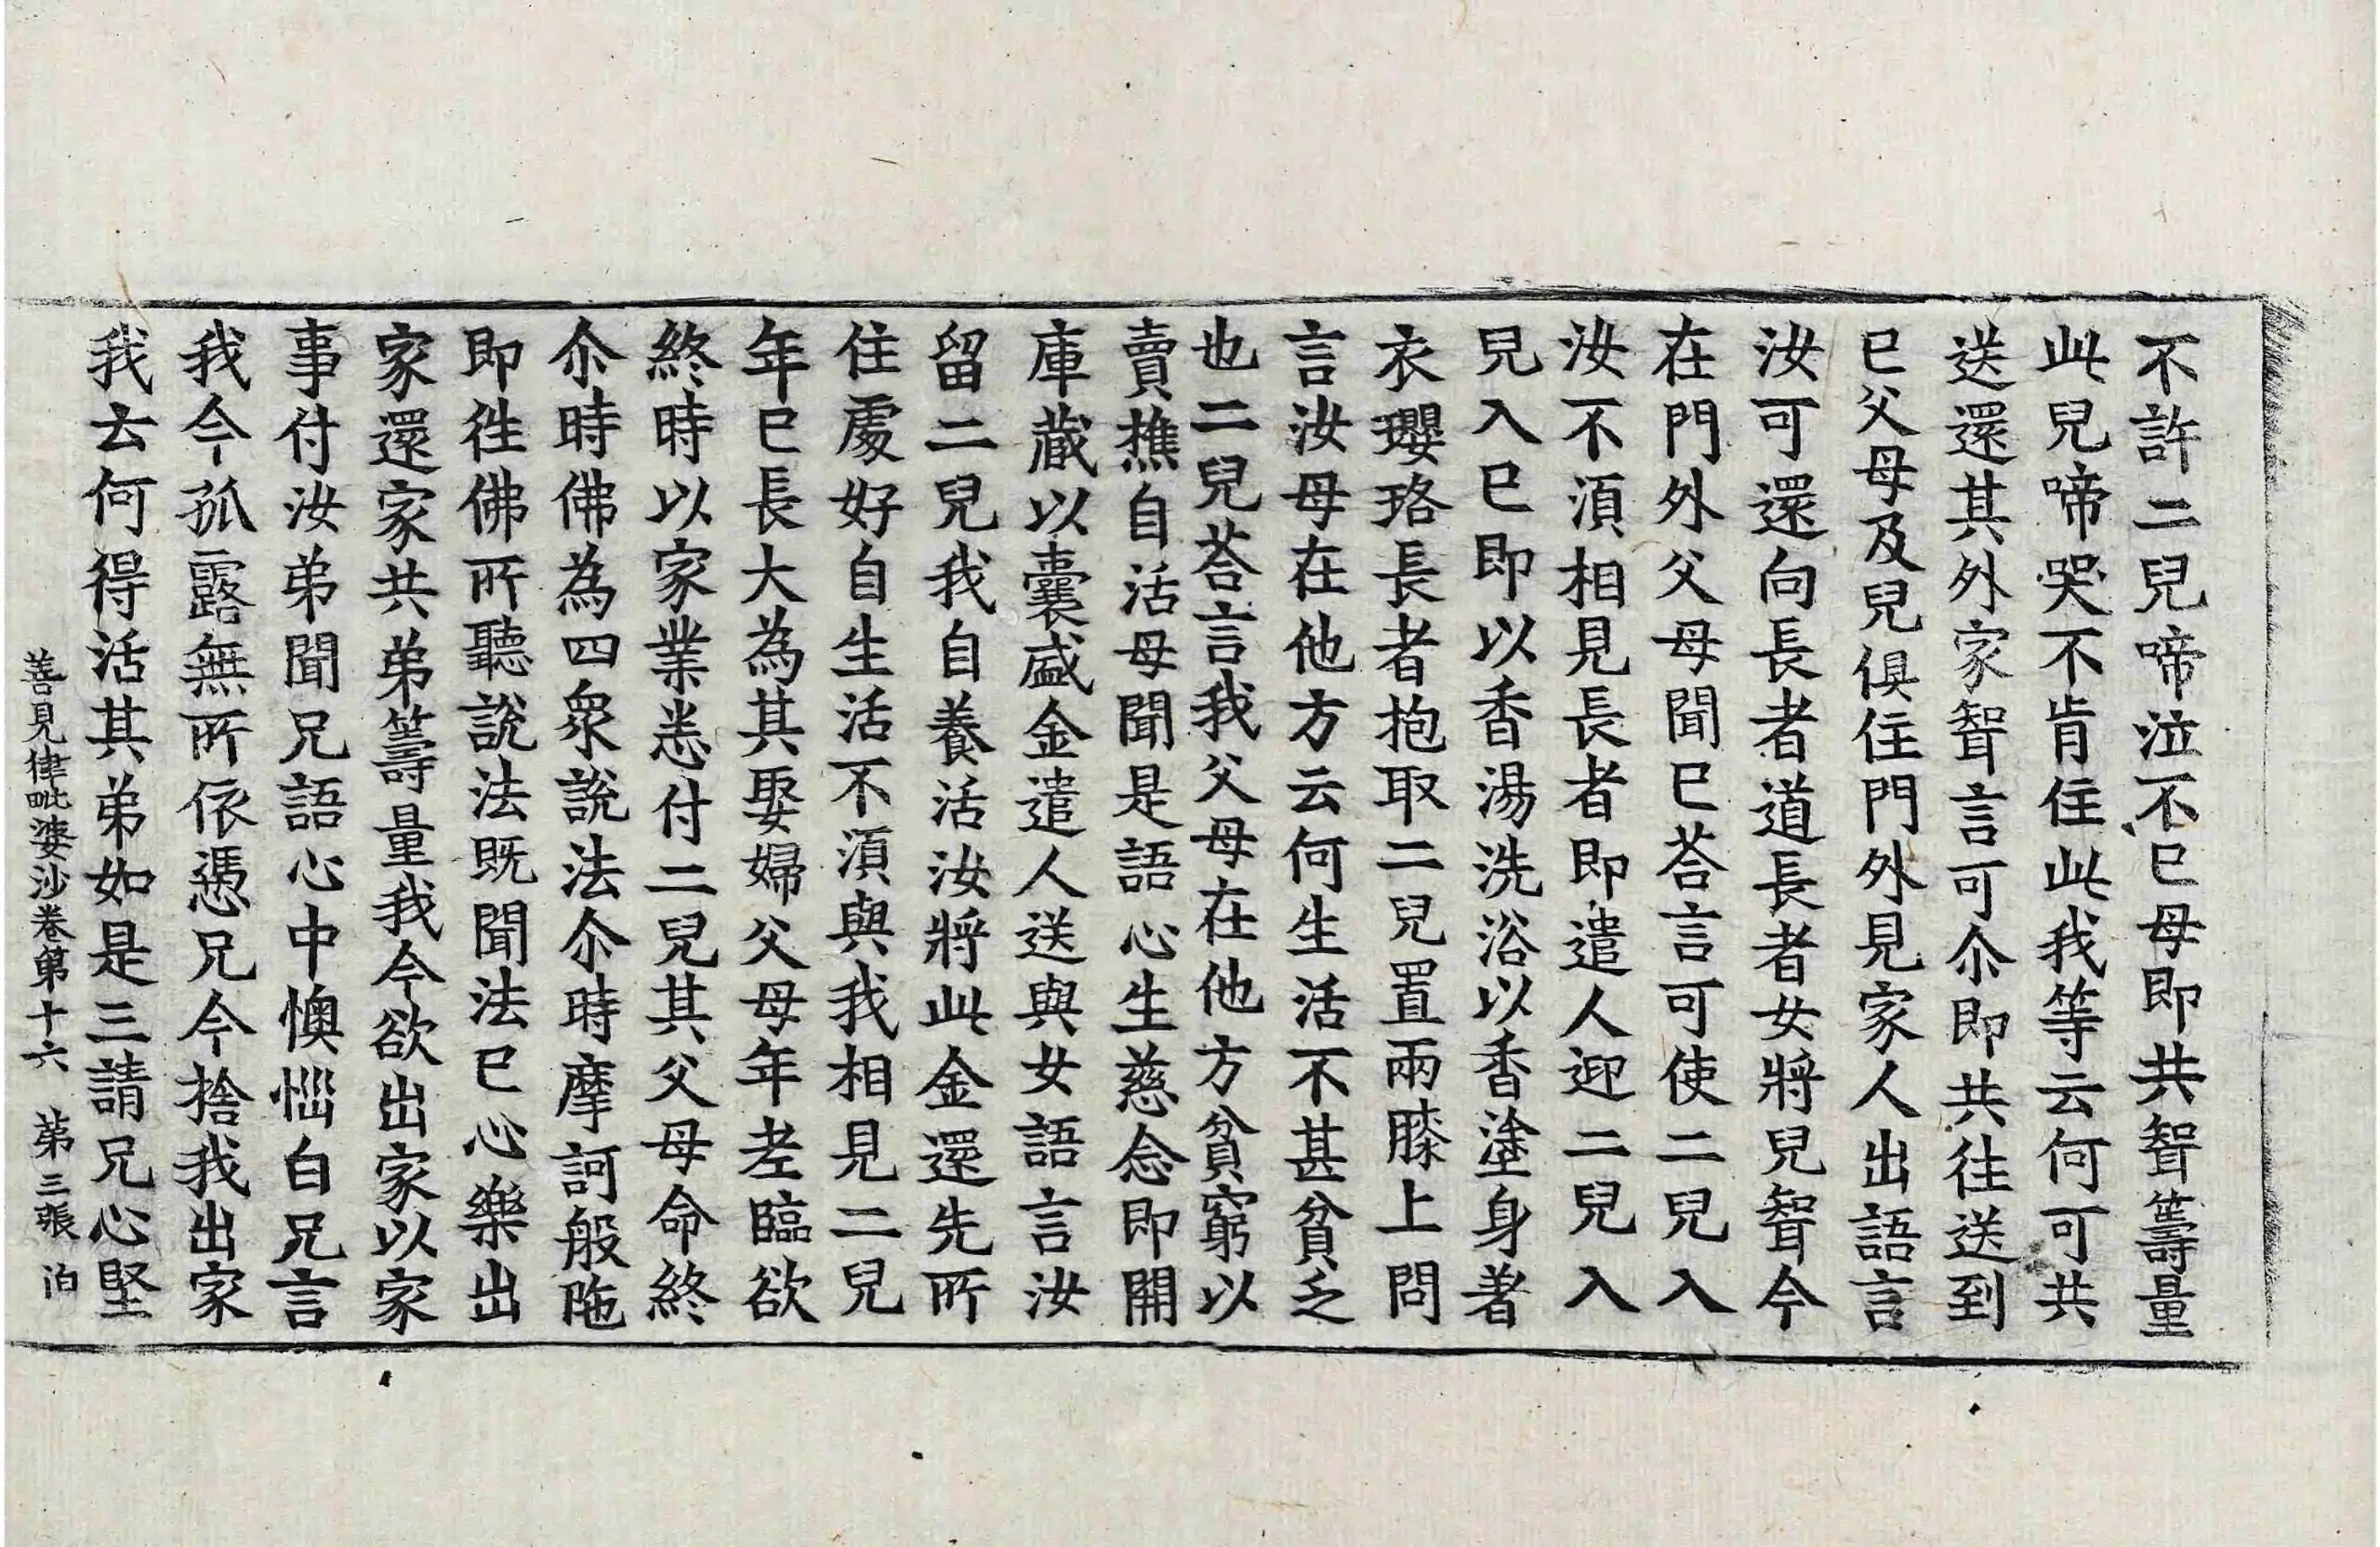 不許二兒啼泣不已母即共聟籌量
此兒啼哭不肯住此我等云何可共
送還其外家聟言可尒即共往送到
已父母及兒俱住門外見家人出語言
汝可還向長者道長者女將兒聟今
在門外父母聞已荅言可使二兒入
汝不湏相見長者即遣人迎二兒入
兒入已即以香湯洗浴以香塗身著
衣瓔珞長者抱取二兒置兩膝上問
言汝母在他方云何生活不甚貧乏
也二兒荅言我父母在他方貧窮以
賣樵自活母聞是語心生慈念即開
庫蔵以囊盛金遣人送與女語言汝
留二兒我自養活汝將此金還先所
住處好自生活不湏與我相見二兒
年已長大為其娶婦父母年老臨欲
終時以家業悉付二兒其父母命終
尒時佛為四衆說法尒時摩訶般陁
即徃佛所聽說法既聞法已心樂出
家還家共弟籌量我今欲出家以家
事付汝弟聞兄語心中懊惱白兄言
我今孤露無所依憑兄今捨我出家
我去何得活其弟如是三請兄心堅
善見律毗婆沙卷第十六 第三張 泊